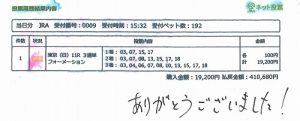 投票履歴結果内容
ネット投票
当日分 JRA 受付番号:0009 受付時刻:15:32 受付ベット数:192
件数 状況 投票内容 金額
1 東京(日) 11R 3連単 フォーメーション
1着:03, 07, 15, 17
2着:03, 07, 08, 13, 15, 17, 18
3着:03, 04, 06, 07, 08, 10, 13, 15, 17, 18
各 100円
計 19,200円
購入金額:19,200円 払戻金額:410,680円
ありがとうございました!